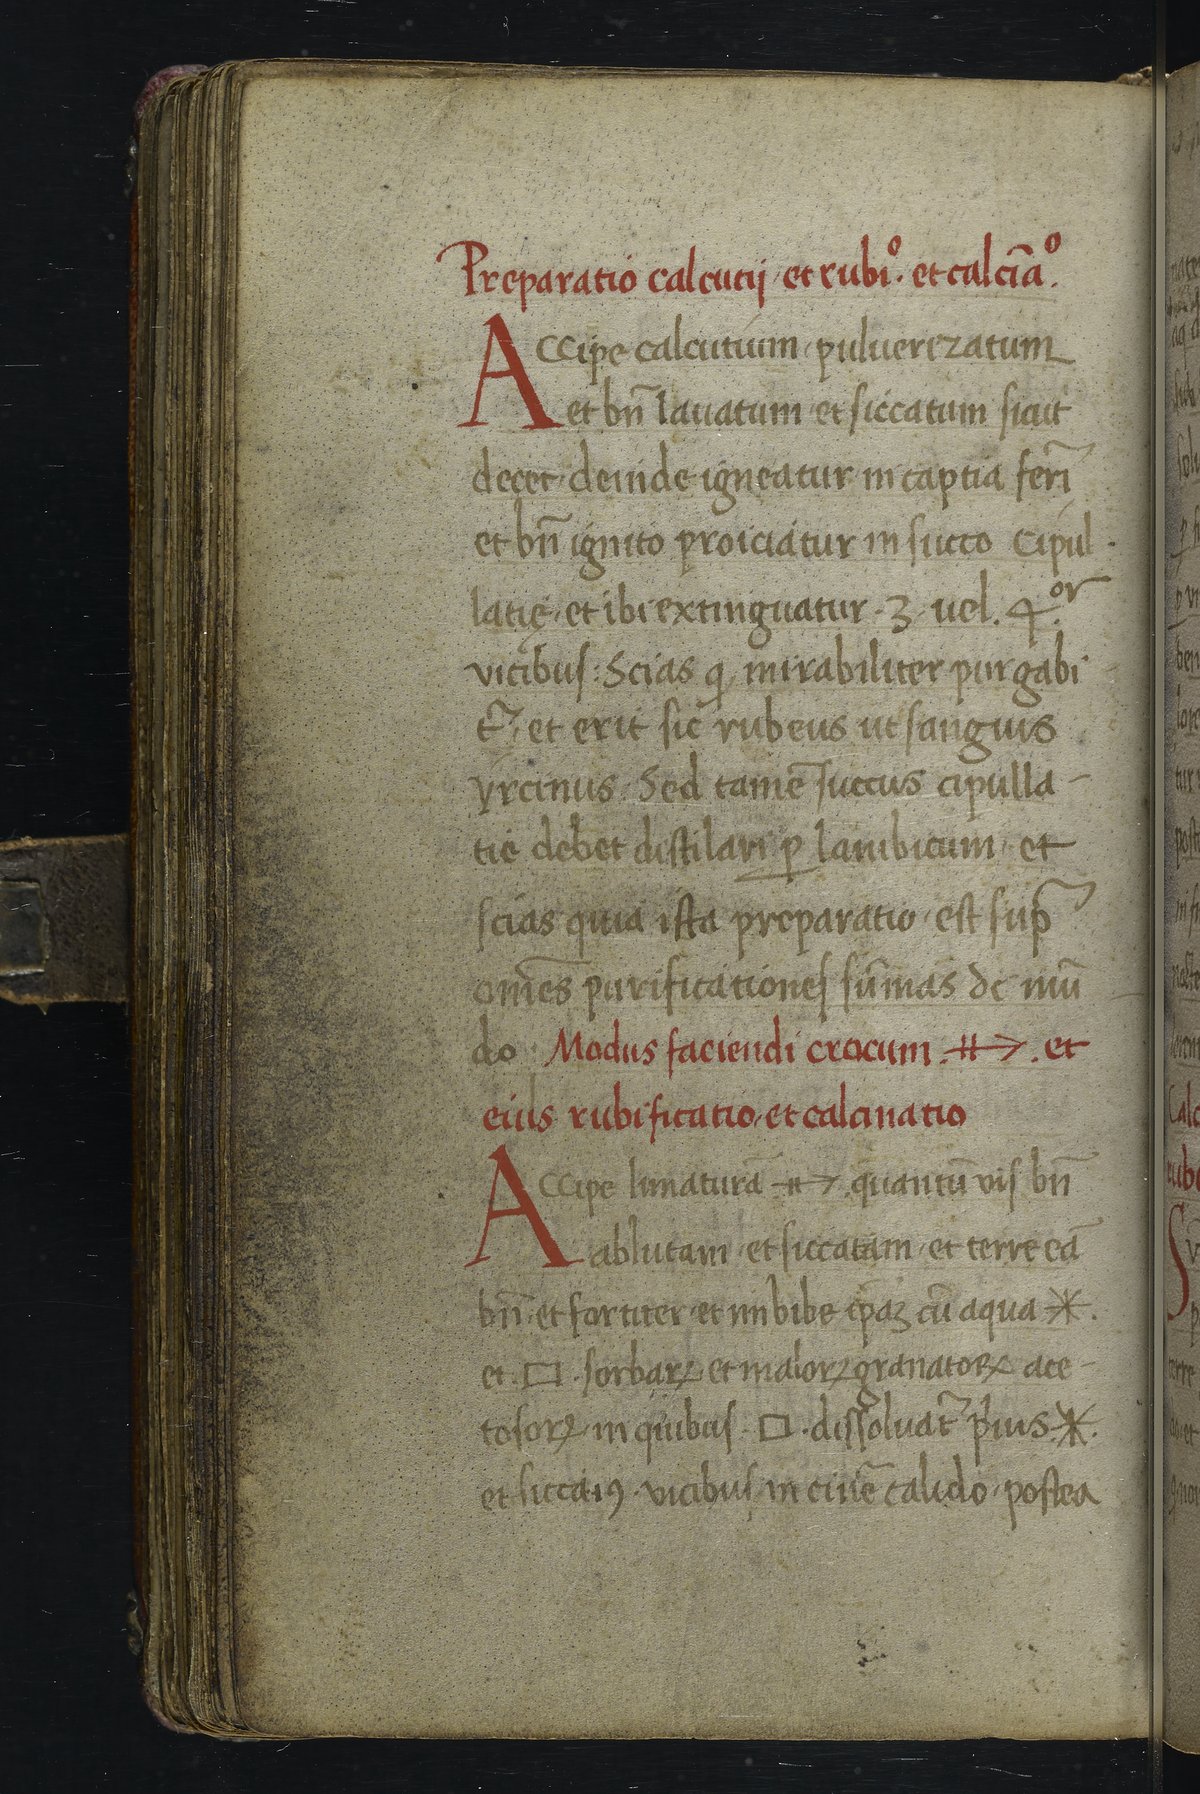 Preparatio calcucij · et rubi.º et calcīa.º
ACCipe calcutium pulverizatum
et bn̄ lauatum et siccatum sicut
decet · deinde igneatur in captia ferri̅
et bn̄ ignito proiciatur in succo Cipul-
latię · et ibi extinguatur · 3 · uel · 4.or
vicibus: Scias q mirabiliter purgabi
t̄ · et erit sic rubeus ut sanguis
yrcinus. Sed tamē succus cipulla-
tie debet distilari ꝑ lambicum · et
scias quia ista preparatio est sup̄
omēs purificationes sūmas de mū
do · Modus faciendi crocum . et
eius rubificatio · et calcinatio
ACCipe limaturā quantū vis bn̄
ablutam · et siccatam · et terre eā
bn̄ · et fortiter · et imbibe ip̄aꝫ cū aqua
et □ · sorbaꝝ et maloꝝ granatoꝝ ace-
tosoꝝ in quibus · □ · dissoluat̄ p̄ius
et sicca · 9 · vicibus in cinē calido · postea